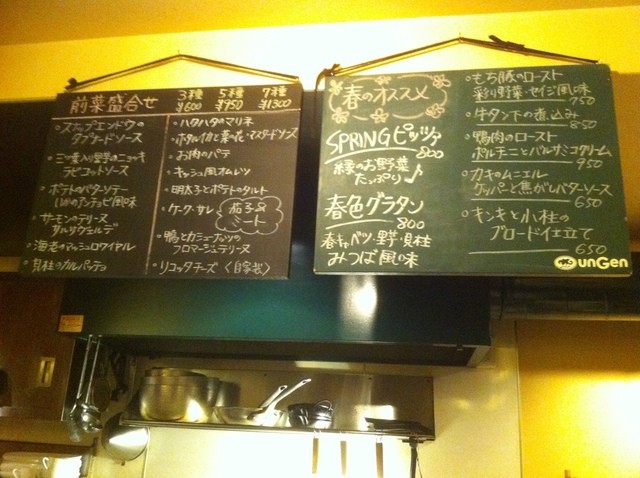 前菜盛合せ
3種 ¥600
5種 ¥950
7種 ¥1300
・スナップエンドウの
タプナードソース
・ポテトのバターソテー
・サーモンのテリーヌ
・海老のマッシュロワイヤル
・貝柱のカルパッチョ
・ハタハタのマリネ
・ホタルイカと菜の花・マスタードソース
・お肉のパテ
・キッシュ風オムレツ
・明太子とポテトのタルト
・ケーク・サレ
茄子&
ミート
・鴨とカシューナッツの
フロマージュテリーヌ
・リコッタチーズ〈自家製〉
春のオススメ
SPRINGピッツァ
800
緑のお野菜
たっぷり♪
春色グラタン
800
春キャベツ・野・貝柱
みつば風味
・もち豚のロースト
彩り野菜・セイジ風味
750
・牛タン下の煮込み
850
・鴨肉のロースト
ポルチーニとバルサミコクリーム
950
・カキのムニエル
ケッパーと焦がしバターソース
650
・キンキと小柱の
ブロード仕立て
650
unGen